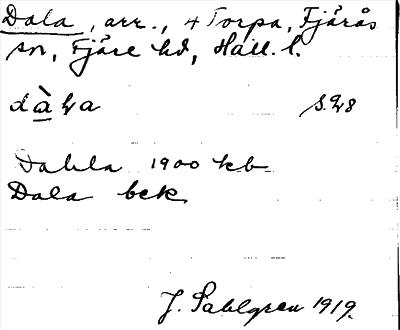 Dala, arr., 4 Torpa, Fjärås
sn, Fjäre hd, Hall. l.
dàla s. 48
Dahla 1900 kb
Dala bek
J. Sahlgren 1919.